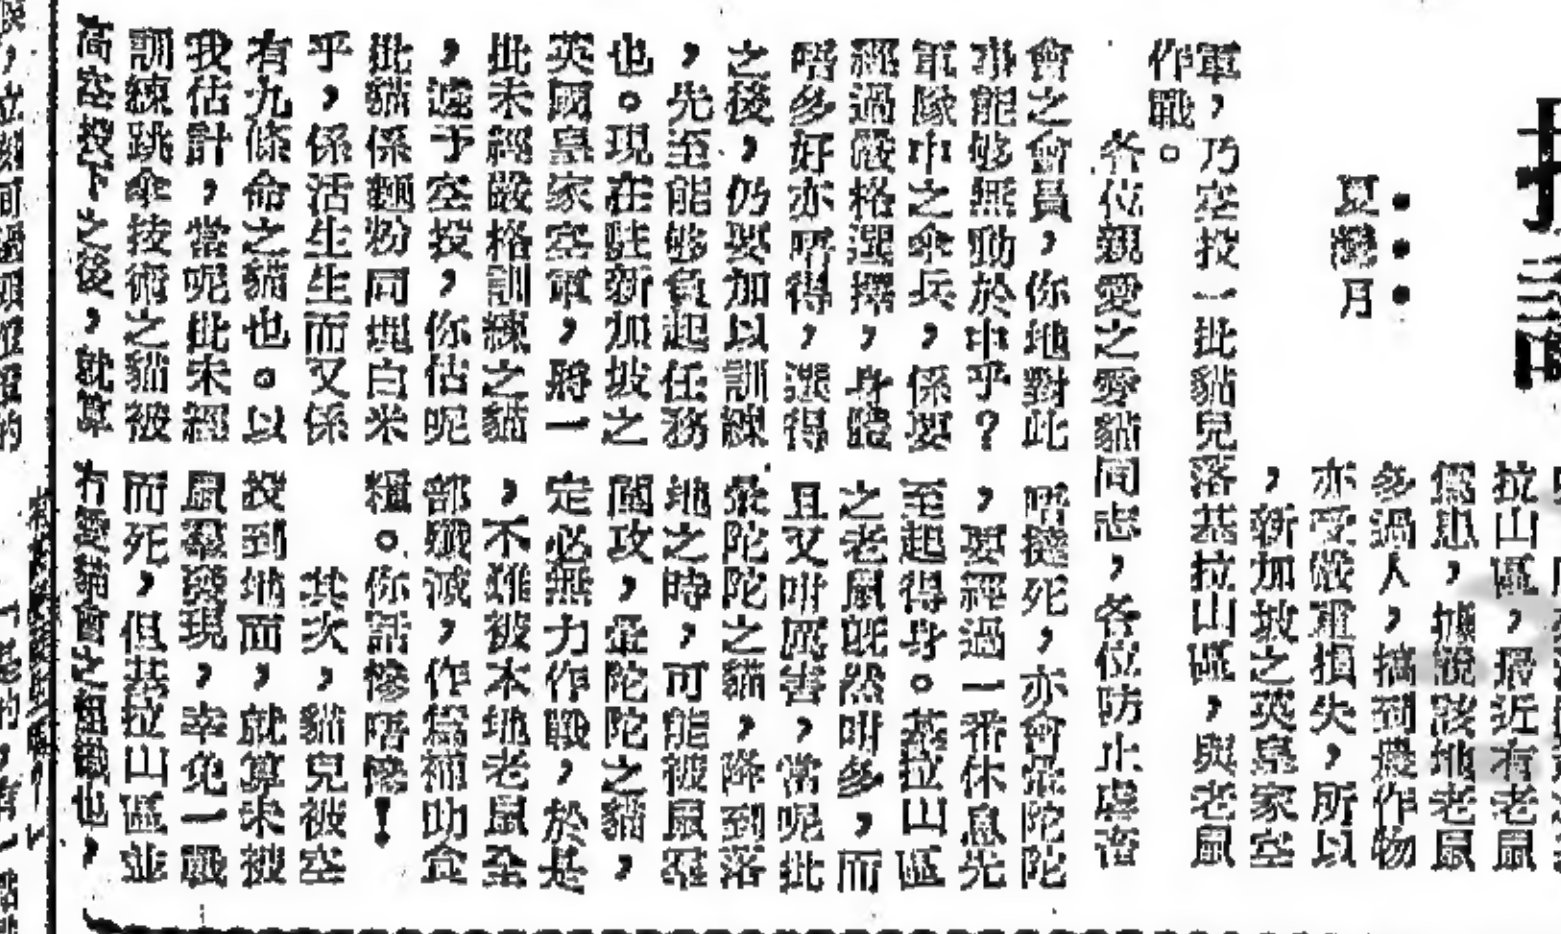 夏灣月
拉山區,最近有老鼠
爲患,據說該地老鼠
多過人,搞到農作物
亦受嚴重損失,所以
,新加坡之英皇家空
軍,乃空投一批貓兒落基拉山區,與老鼠
作戰。
各位親愛之愛貓同志,各位防止虐畜
會之會員,你地對此
事能够無動於中乎?
軍隊中之傘兵,係要
經過嚴格選擇,身體
唔多好亦唔得,選得
之後,仍要加以訓練
,先至能够負起任務
也。現在駐新加坡之
英國皇家空軍,將一
批未經嚴格訓練之貓
,遽于空投,你估呢
批貓係麵粉同埋白米
乎,係活生生而又係
有九條命之貓也。以
我估計,當呢批未經
訓練跳傘技術之貓被
高空投下之後,就算
唔撻死,亦會暈陀陀
,要經過一番休息先
至起得身。基拉山區
之老鼠既然咁多,而
且又咁厲害,當呢批
暈陀陀之貓,降到落
地之時,可能被鼠羣
圍攻,暈陀陀之貓,
定必無力作戰,於是
,不難被本地老鼠全
部殲滅,作爲補助食
糧。你話慘唔慘!
其次,貓兒被空
投到地面,就算未被
鼠羣發現,幸免一戰
而死,但基拉山區並
冇愛貓會之組織也,